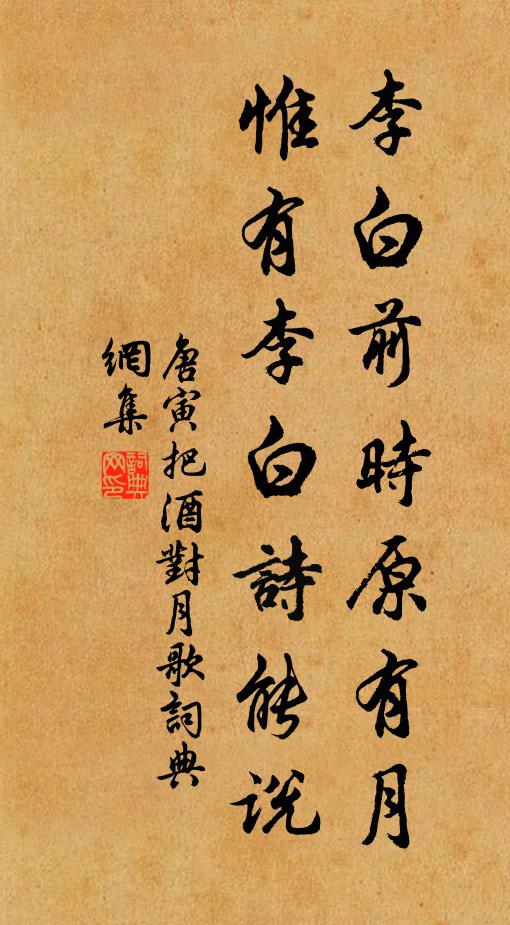 李白前時原有月
惟有李白詩能說
唐寅把酒對月歌詞典
網集
詞典
網印